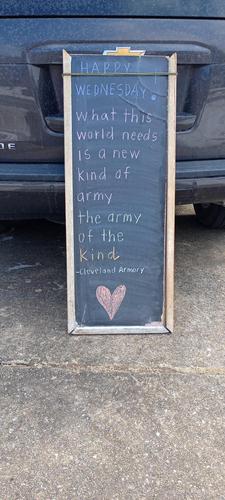 HAPPY
WEDNESDAY.
what this
world needs
is a new
kind of
army
the army
of the
Kind
-Cleveland Armory